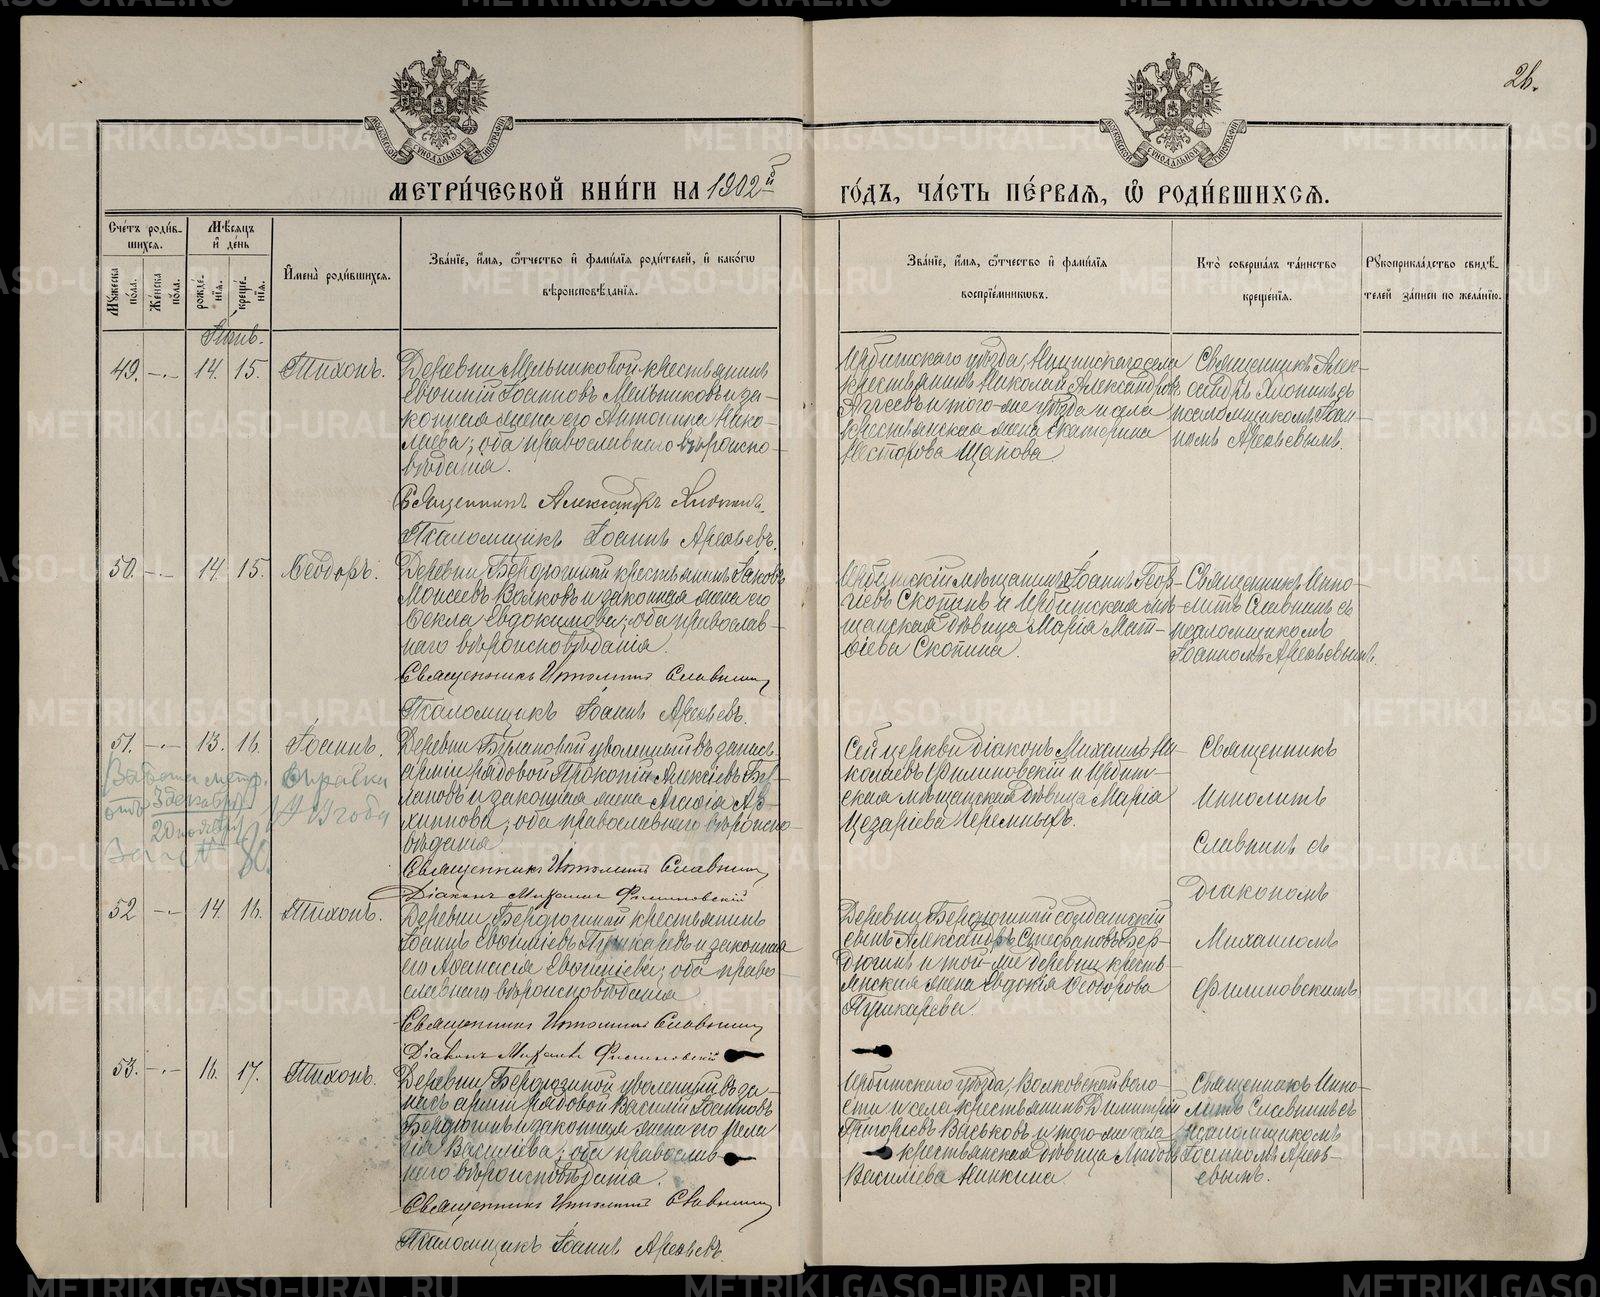 26.
МОСКОВСКОЙ СѴНОДАЛЬНОЙ ТИПОГРАФІИ
МОСКОВСКОЙ СѴНОДАЛЬНОЙ ТИПОГРАФІИ
МЕТРИ́ЧЕСКОЙ КНИ́ГИ НА 1902й
ГО́ДЪ, ЧА́СТЬ ПЕ́РВАѦ, Ѡ҆ РОДИ́ВШИХСѦ.
Сче́тъ роди́в-
шихсѧ.
Мѣ́сѧцъ
и҆ де́нь
Мꙋ́жеска по́ла.
Же́нска по́ла.
рожде́-
нїѧ.
креще́-
нїѧ.
И҆мена̀ роди́вшихсѧ.
Зва́нїе, и҆́мѧ, ѻ҆́тчество и҆ фами́лїѧ роди́телей, и҆ како́гѡ
вѣроисповѣ́данїѧ.
Зва́нїе, и҆́мѧ, ѻ҆́тчество и҆ фами́лїѧ
воспрїе́мникѡвъ.
Кто̀ соверша́лъ та́инство
креще́нїѧ.
Рꙋкоприкла́дство свидѣ́-
телей за́писи по жела́нїю.
Іюнь.
49. —.— 14. 15. Тихонъ.
Деревни Мельниковой крестьянинъ
Евѳимій Іоанновъ Мельниковъ и за-
конная жена его Антонина Нико-
лаева; оба православнаго вѣроиспо-
вѣданія.
Священникъ Александръ Хлопинъ.
Псаломщикъ Іоаннъ Арефьевъ.
Ирбитскаго уѣзда, Ницинскаго села
крестьянинъ Николай Александровъ
и того-же уѣзда и села
крестьянская жена Екатерина
Несторова Щапова.
Священникъ Алек-
сандръ Хлопинъ съ
псаломщикомъ Іоан-
номъ Арефьевымъ.
50. —.— 14. 15. Ѳеодоръ.
Деревни Бердюгиной крестьянинъ Іаковъ
Моисеевъ Волковъ и законная жена его
Ѳекла Евдокимова; оба православ-
наго вѣроисповѣданія.
Священникъ Ипполитъ Славнинъ
Псаломщикъ Іоаннъ Арефьевъ.
Ирбитскій мѣщанинъ Іоаннъ Геор-
гіевъ Скопинъ и Ирбитская мѣ-
щанская дѣвица Марія Мат-
ѳіева Скопина.
Священникъ Иппо-
литъ Славнинъ съ
псаломщикомъ
Іоанномъ Арефьевымъ.
51. —.— 13. 16. Іоаннъ.
Деревни Булановой уволенный въ запасъ
арміи рядовой Прокопій Алексіевъ Бу-
лановъ и законная жена Агафія Ар-
хиппова; оба православнаго вѣроиспо-
вѣданія.
Священникъ Ипполитъ Славнинъ
Діаконъ Михаилъ Филиповскій
Сей церкви діаконъ Михаилъ Ни-
колаевъ Филиповскій и Ирбит-
ская мѣщанская дѣвица Марія
Цезаріева Черемныхъ.
Священникъ
Ипполитъ
Славнинъ съ
діакономъ
Михаиломъ
Филиповскимъ.
метр. справка
3 декабря
года
52 —.— 14. 16. Тихонъ.
Деревни Бердюгиной крестьянинъ
Іоаннъ Евѳиміевъ Пушкаревъ и законная
его Аѳанасія Евѳиміева; оба право-
славнаго вѣроисповѣданія
Священникъ Ипполитъ Славнинъ
Діаконъ Михаилъ Филиповскій
Деревни Бердюгиной солдатскій
сынъ Александръ Стефановъ Бер-
дюгинъ и той-же деревни кресть-
янская жена Евдокія Ѳеодорова
Пушкарева.
53. —.— 16. 17. Тихонъ.
Деревни Бердюгиной уволенный въ за-
пасъ арміи рядовой Василій Іоанновъ
Бердюгинъ и законная жена его Пела
гія Василіева; оба православ-
наго вѣроисповѣданія.
Священникъ Ипполитъ Славнинъ
Псаломщикъ Іоаннъ Арефьевъ.
Ирбитскаго уѣзда, Волковской воло-
сти и села крестьянинъ Димитрій
Григоріевъ Васьковъ и того-же села
крестьянская дѣвица Любовь
Василіева Нинкина.
Священникъ Иппо-
литъ Славнинъ съ
псаломщикомъ
Іоанномъ Арефь-
евымъ.
METRIKI.GASO-URAL.RU